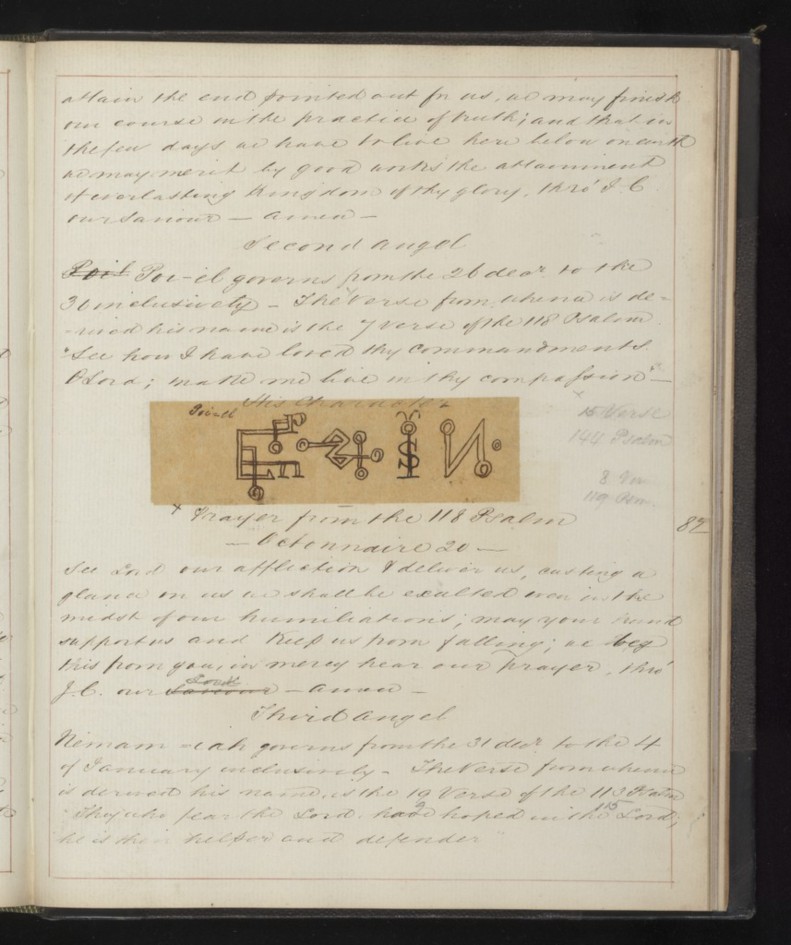 attain the end pointed out for us, we may finish
our course in the practice of truth; and that in
the few days we have to live here below on earth
we may merit by good works the attainment
of everlasting Kingdom of thy glory. thro' J. C.
our Saviour — Amen —
Second Angel
Poi-el governs from the 26 decr. to the
30 inclusively — The Verse from whence is de-
-rived his name is the 7 verse of the 118 Psalm
"See how I have loved thy commandments
O Lord; make me live in thy compassion" —
His Character
x
15 Verse
144 Psalm
8 Ver
119 Psm.
x Prayer from the 118 Psalm
82
— Octonnaire 20 —
See Lord our affliction & deliver us, casting a
glance on us we shall be exalted even in the
midst of our humiliations; may your hand
support us and Keep us from falling; we beg
this from you, in mercy hear our prayer, thro'
J. C. our Saviour Lord — Amen —
Third Angel
Nemam-eah governs from the 31 decr. to the 4
of January inclusively — The Verse from whence
is derived his name is the 19 Verse of the 113 Psalm
"They who fear the Lord have hoped in the Lord,
he is their helper and defender